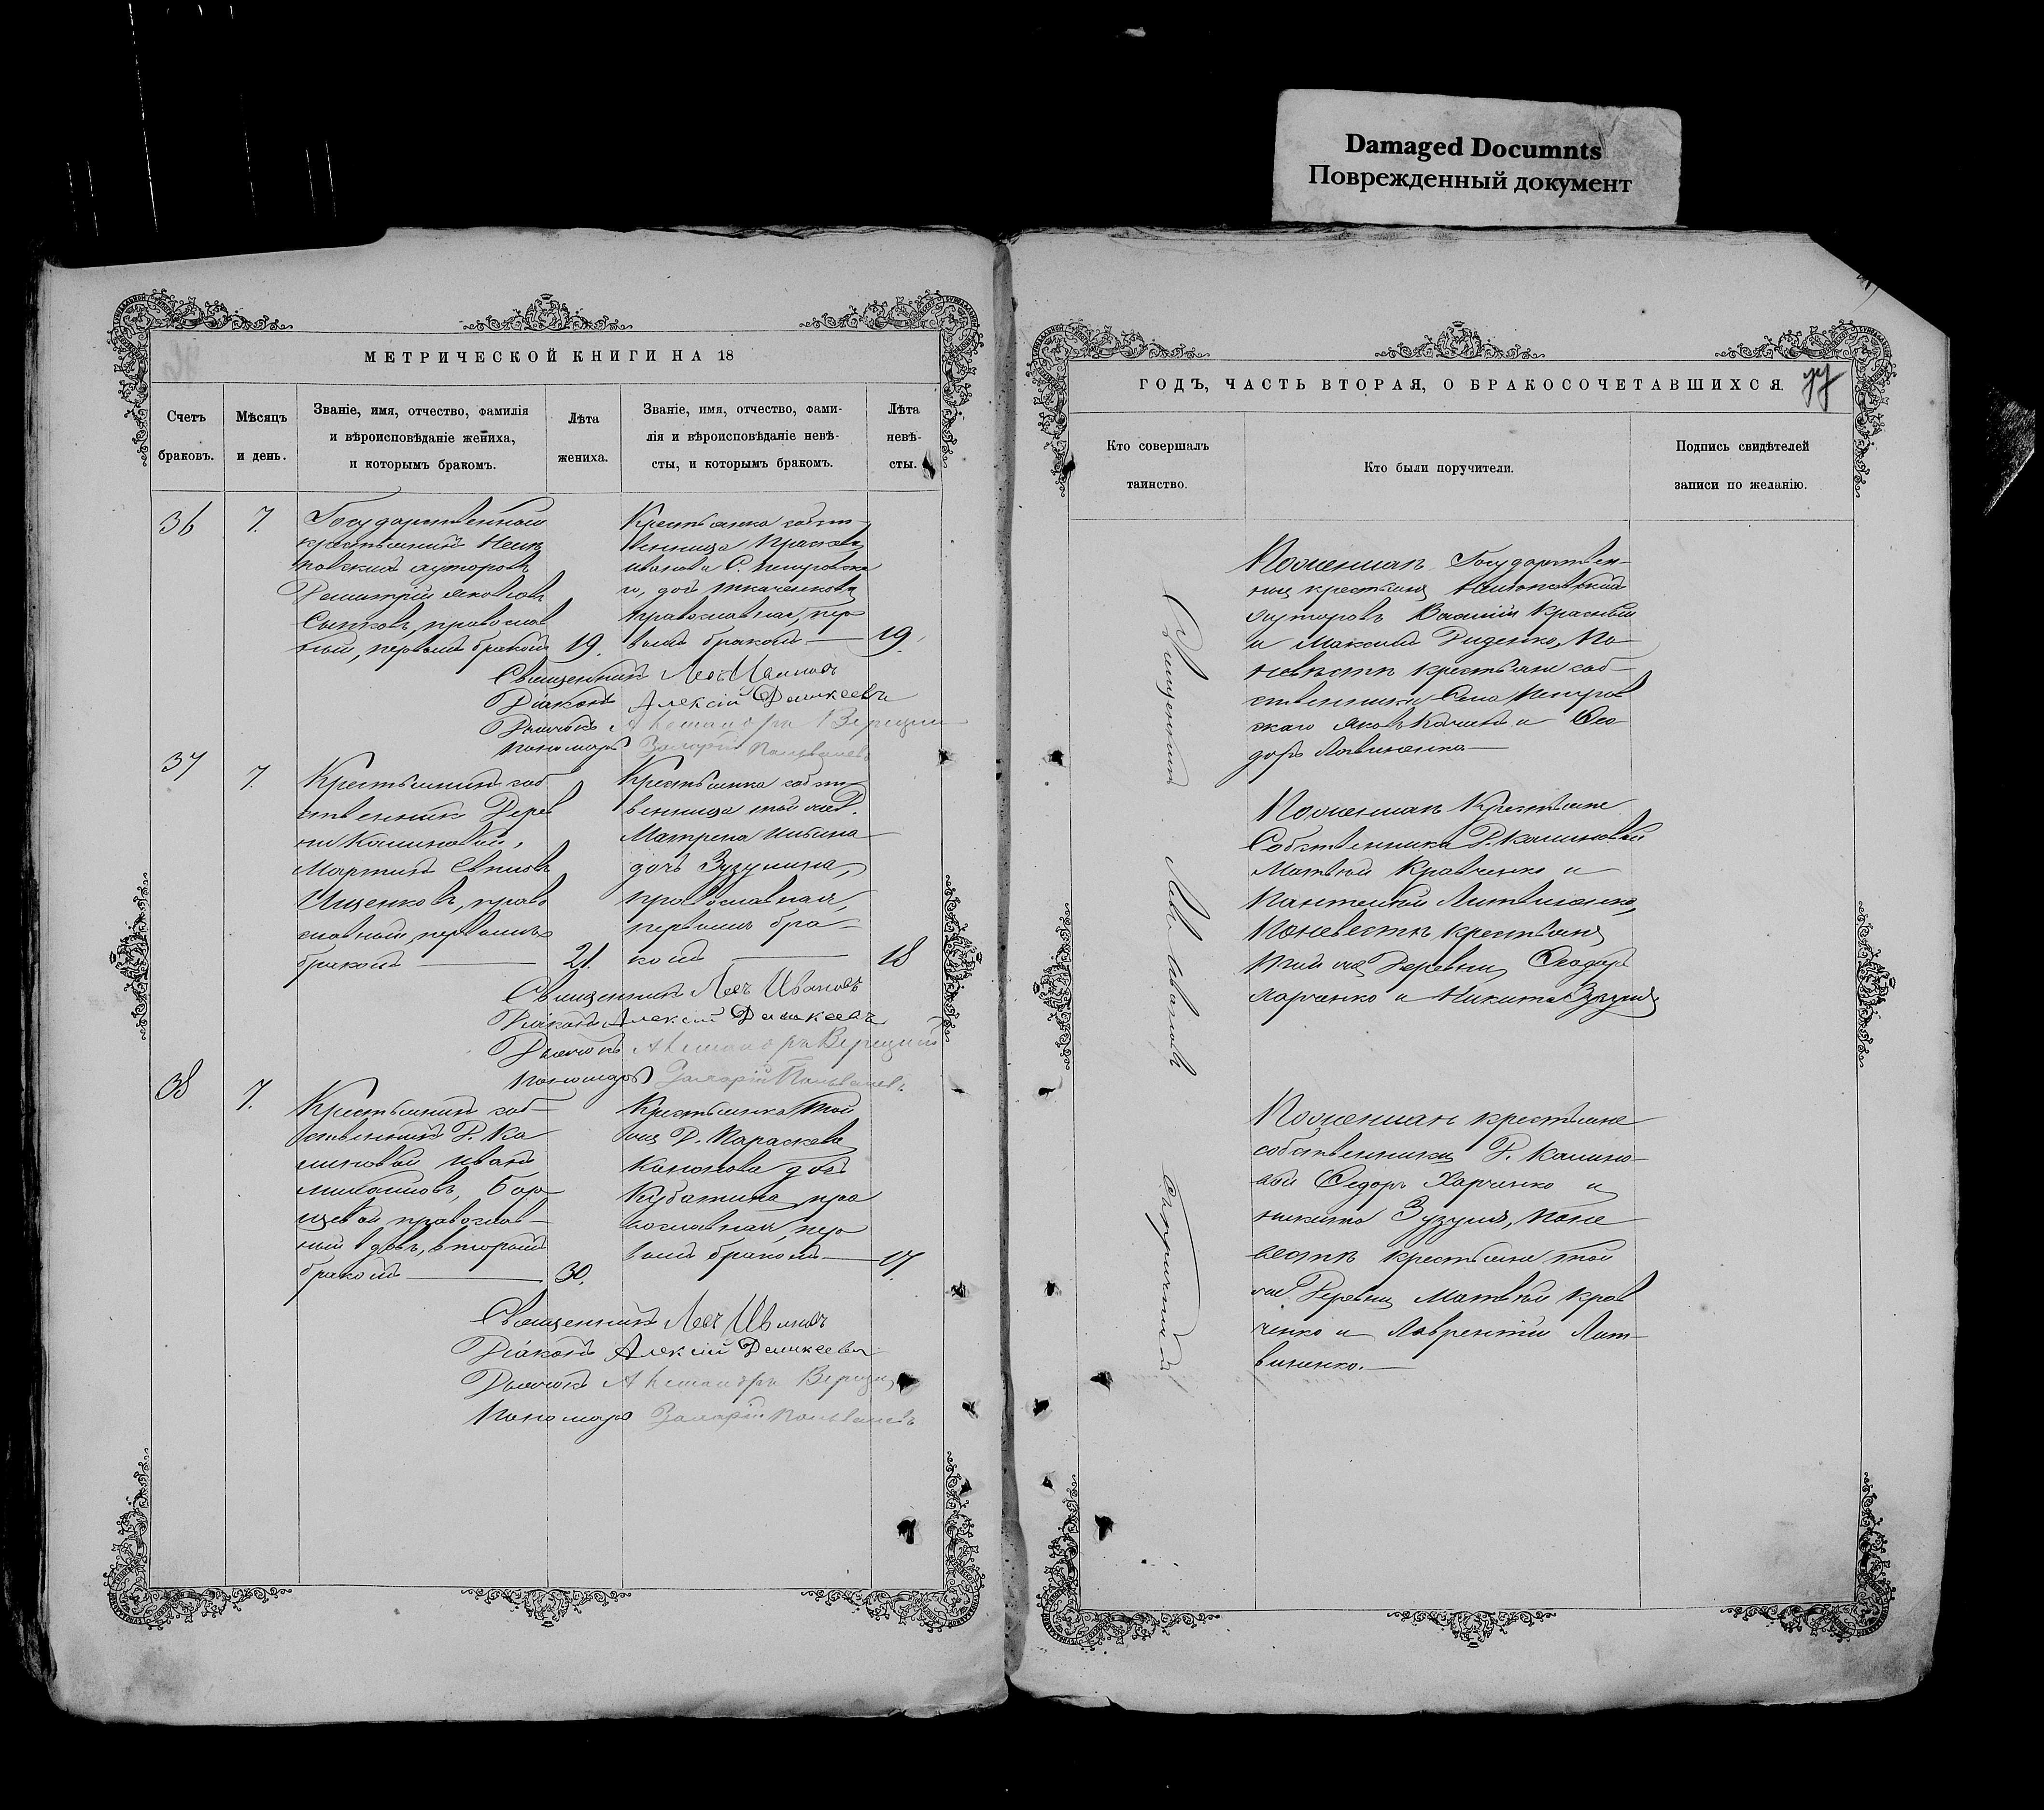 Damaged Documnts
Поврежденный документ
МЕТРИЧЕСКОЙ КНИГИ НА 18
Счетъ браковъ.
Мѣсяцъ и день.
Званіе, имя, отчество, фамилія
и вѣроисповѣданіе жениха,
и которымъ бракомъ.
Лѣта
жениха.
Званіе, имя, отчество, фами-
лія и вѣроисповѣданіе невѣ-
сты, и которымъ бракомъ.
Лѣта
невѣ-
сты.
36
7.
Государственный
крестьянинъ
хуторовъ
Димитрій Яковлевъ
православ
ный, первымъ бракомъ
19.
Крестьянка собст-
венница Праскева
Иванова С. Петровска
го, дочь Ткаченкова
православная, пер
вымъ бракомъ —
19.
Священникъ Левъ Ивановъ
Діаконъ Алексій
Дьячокъ Александръ
Пономарь Захарій
37
7.
Крестьянинъ соб
ственникъ Дерев
ни Калиновой,
Мартинъ
Ищенковъ, право
славный, первымъ
бракомъ —
21.
Крестьянка собст-
венница той же Д.
Матрена Ильина
дочь Зузулина,
православная,
первымъ бра-
комъ —
18
Священникъ Левъ Ивановъ
Діаконъ Алексій
Дьячокъ Александръ
Пономарь Захарій
38
7.
Крестьянинъ соб-
ственникъ Д. Ка
линовой Иванъ
Михайловъ, Бор
щевой православ-
ный вторымъ
бракомъ —
30.
Крестьянка той
же Д. Параскева
Кононова дочь
пра
вославная, пер
вымъ бракомъ —
17.
Священникъ Левъ Ивановъ
Діаконъ Алексій
Дьячокъ Александръ
Пономарь Захарій
ГОДЪ, ЧАСТЬ ВТОРАЯ, О БРАКОСОЧЕТАВШИХСЯ.
77
Кто совершалъ
таинство.
Кто были поручители.
Подпись свидѣтелей
записи по желанію.
Священникъ Левъ Ивановъ
По женихѣ Государствен-
ные крестьяне
хуторовъ Василій Красный
и Максимъ Диденко, по
невѣстѣ крестьяне соб-
ственники Села Петров
скаго Яковъ и Фео
доръ Литвиненко —
По женихѣ Крестьяне
Собственники Д. Калиновой
Матвѣй Кравченко и
Пантелей Литвиненко,
По невестѣ крестьяне
той же Деревни Феодоръ
Харченко и Никита Зузуля
По женихѣ крестьяне
собственники Д. Калино-
вой Федоръ Харченко и
Никита Зузуля, по не
вестѣ крестьяне той
же Деревни Матвѣй Крав
ченко и Лаврентій Лит-
виненко. —